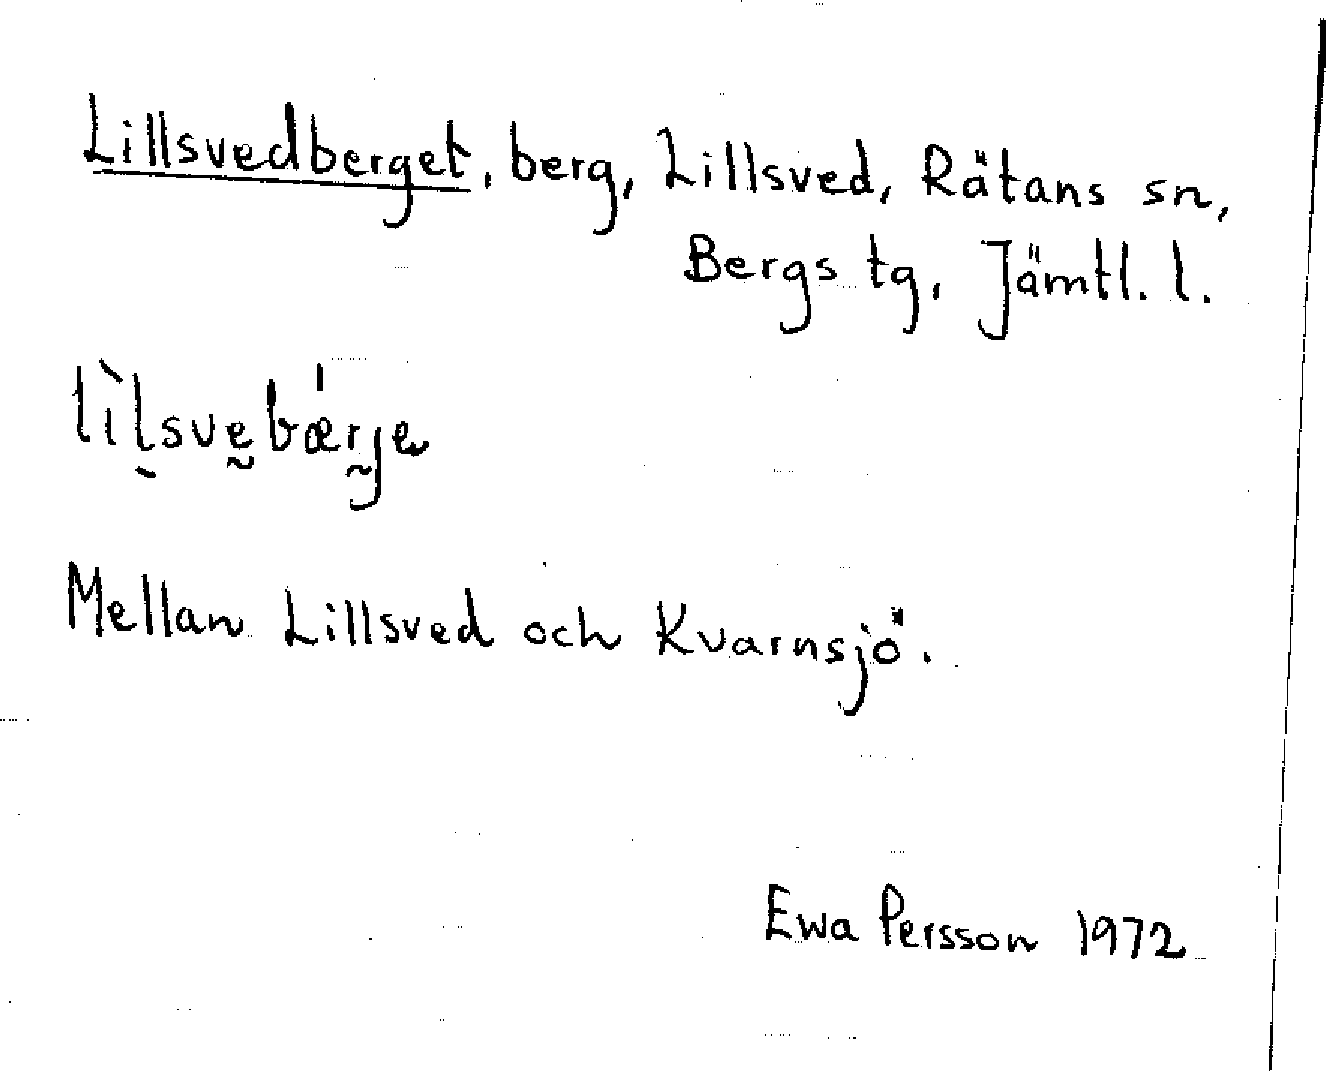 Lillsvedberget, berg, Lillsved, Rätans sn,
Bergs tg, Jämtl. l.
lìl̖svḛbǽr̰je
Mellan Lillsved och Kvarnsjö.
Ewa Persson 1972